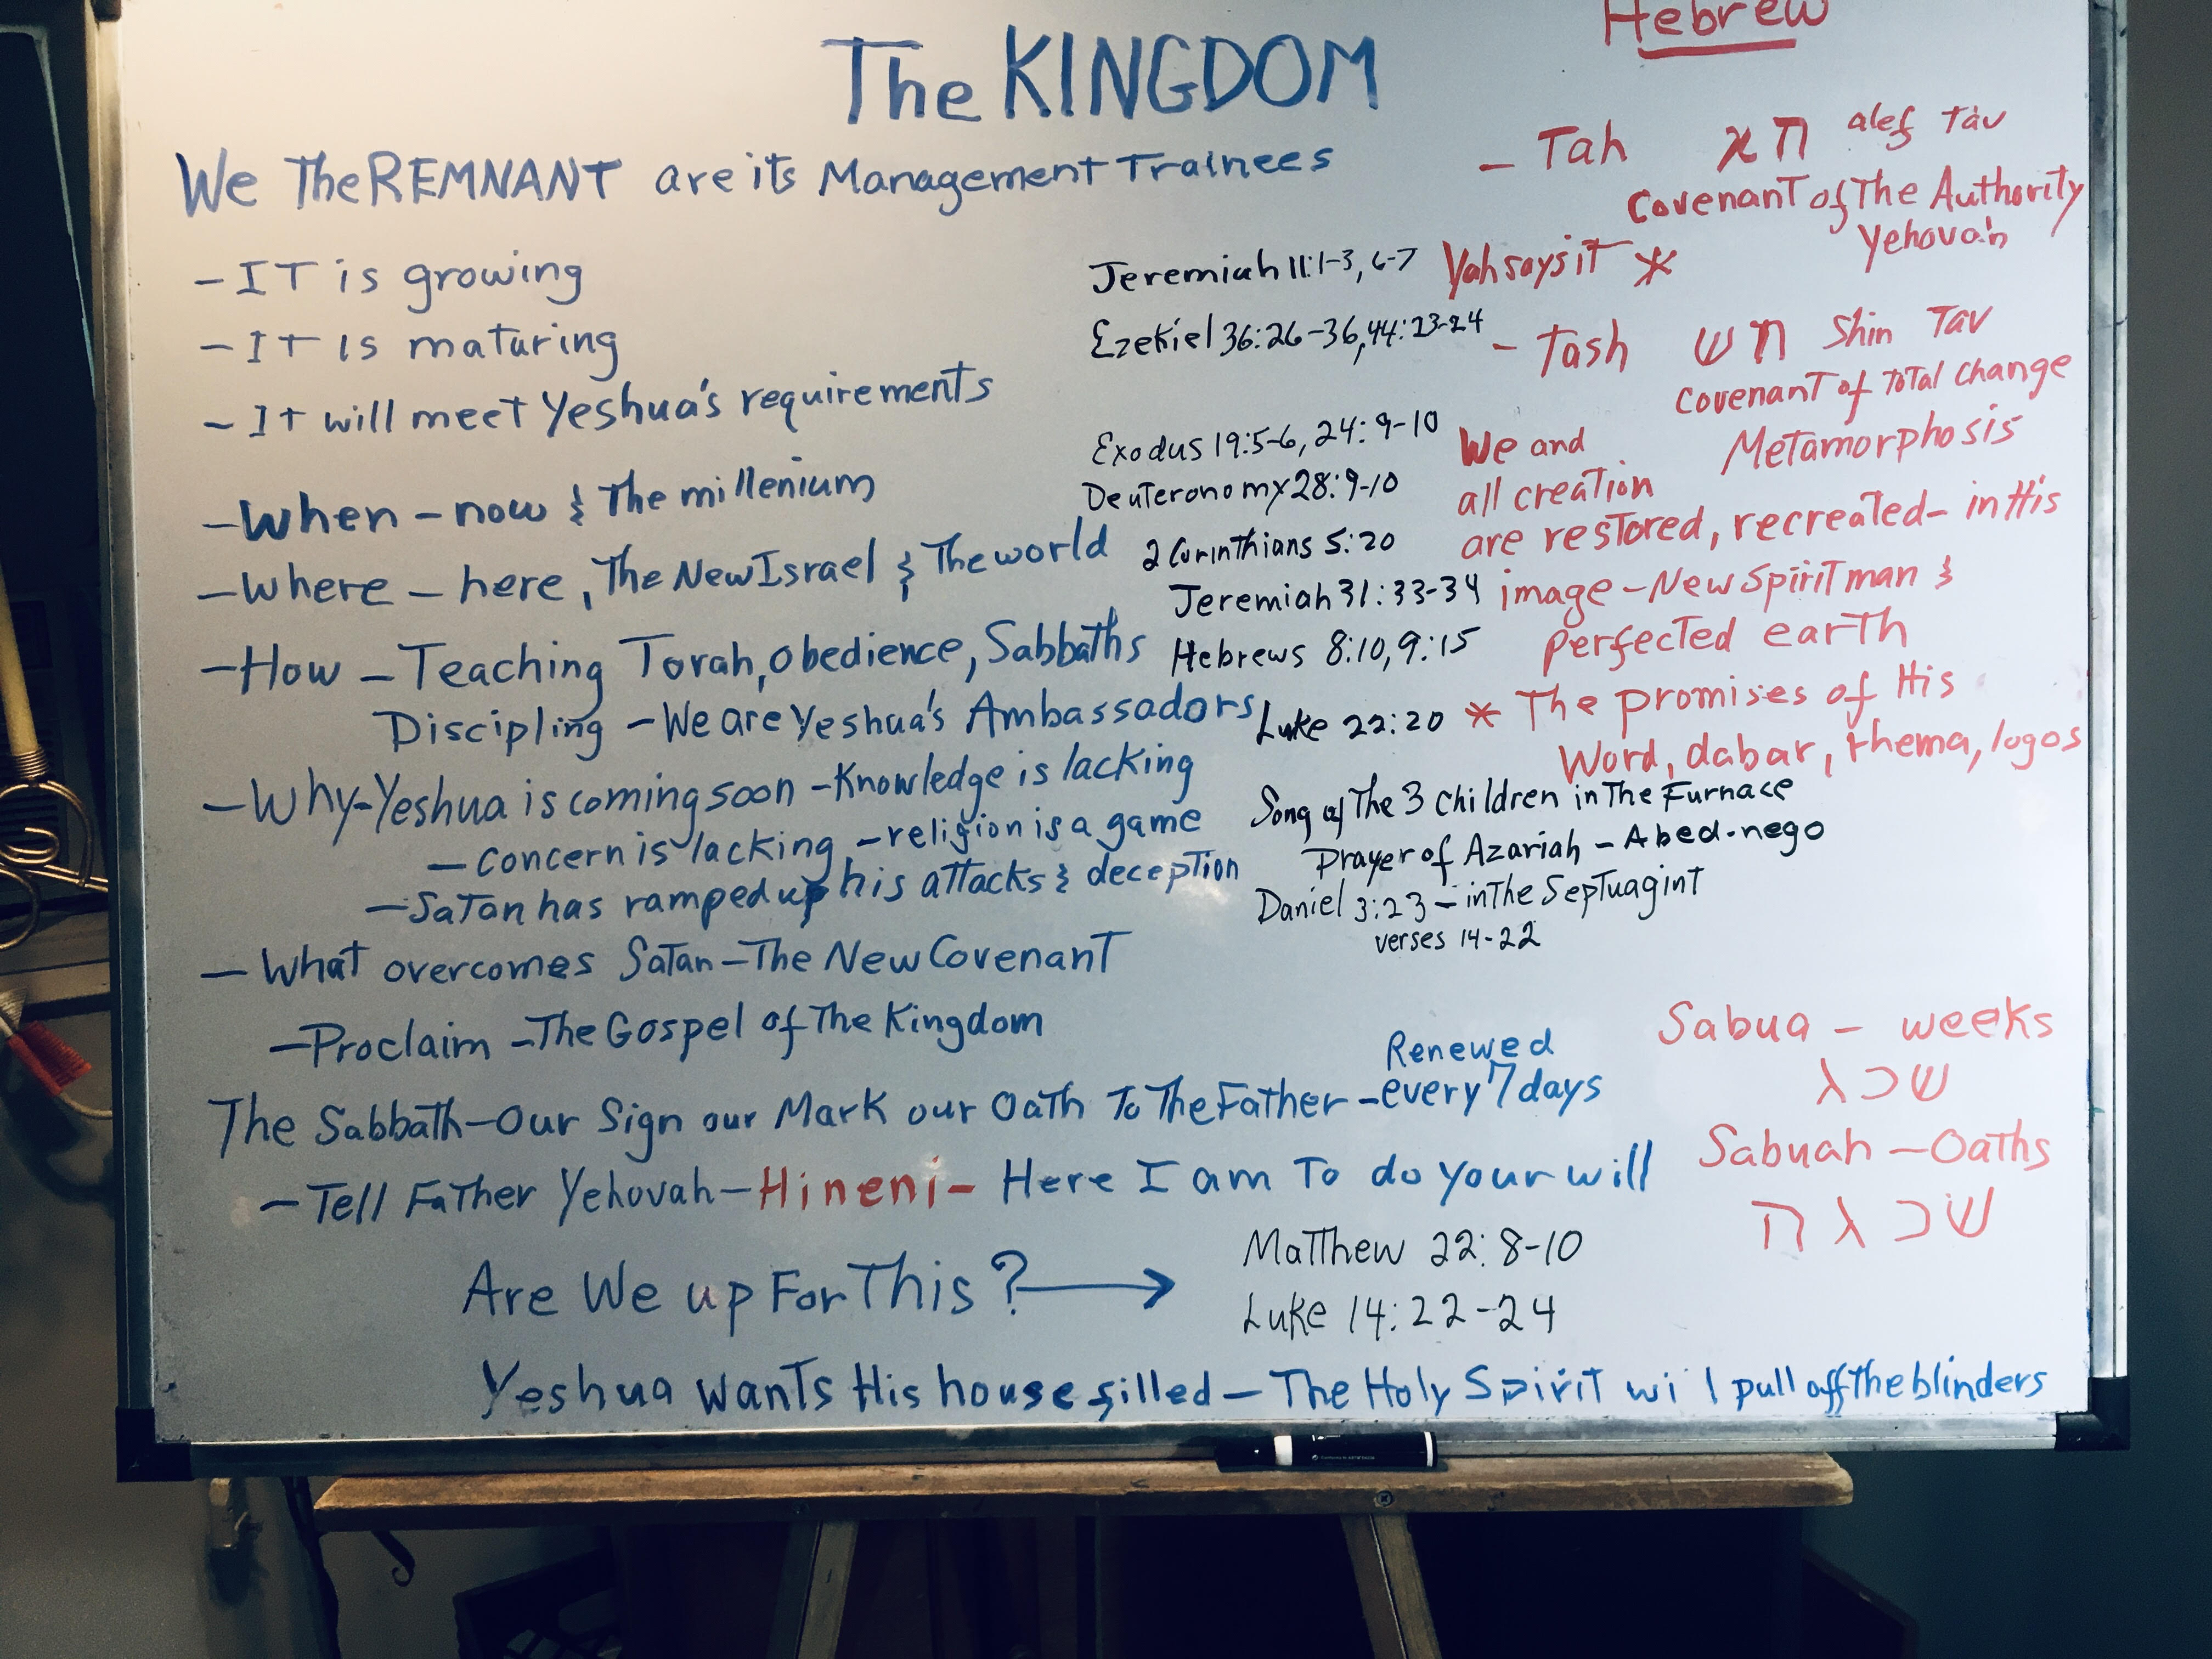 The KINGDOM
Hebrew
We The REMNANT are its Management Trainees
- Tah א ת alef Tav
Covenant of The Authority
Yehovah
- IT is growing
Jeremiah 11:1-3, 6-7 Yah says it *
- It Is maturing
Ezekiel 36:26-36, 44:23-24
- Tash ש ת Shin Tav
Covenant of Total Change
Metamorphosis
- It will meet Yeshua's requirements
Exodus 19:5-6, 24:9-10
Deuteronomy 28:9-10
We and
all creation
are restored, recreated - in His
image - New Spirit man &
perfected earth
- When - now & The millenium
- Where - here, The New Israel & The world
2 Corinthians 5:20
Jeremiah 31:33-34
- How - Teaching Torah, Obedience, Sabbaths
Hebrews 8:10, 9:15
Discipling - We are Yeshua's Ambassadors
Luke 22:20 * The promises of His
Word, dabar, rhema, logos
- Why - Yeshua is coming soon - Knowledge is lacking
- Concern is lacking - religion is a game
- Satan has ramped up his attacks & deception
Song of The 3 Children in The Furnace
Prayer of Azariah - Abed-nego
Daniel 3:23 - in The Septuagint
verses 14-22
- What overcomes Satan - The New Covenant
- Proclaim - The Gospel of The Kingdom
Sabua - weeks
שכג
The Sabbath - Our Sign our Mark our Oath To The Father - Renewed
every 7 days
Sabuah - Oaths
שכגה
- Tell Father Yehovah - Hineni - Here I am To do your will
Are We up For This? →
Matthew 22:8-10
Luke 14:22-24
Yeshua wants His house filled - The Holy Spirit wi l pull off the blinders